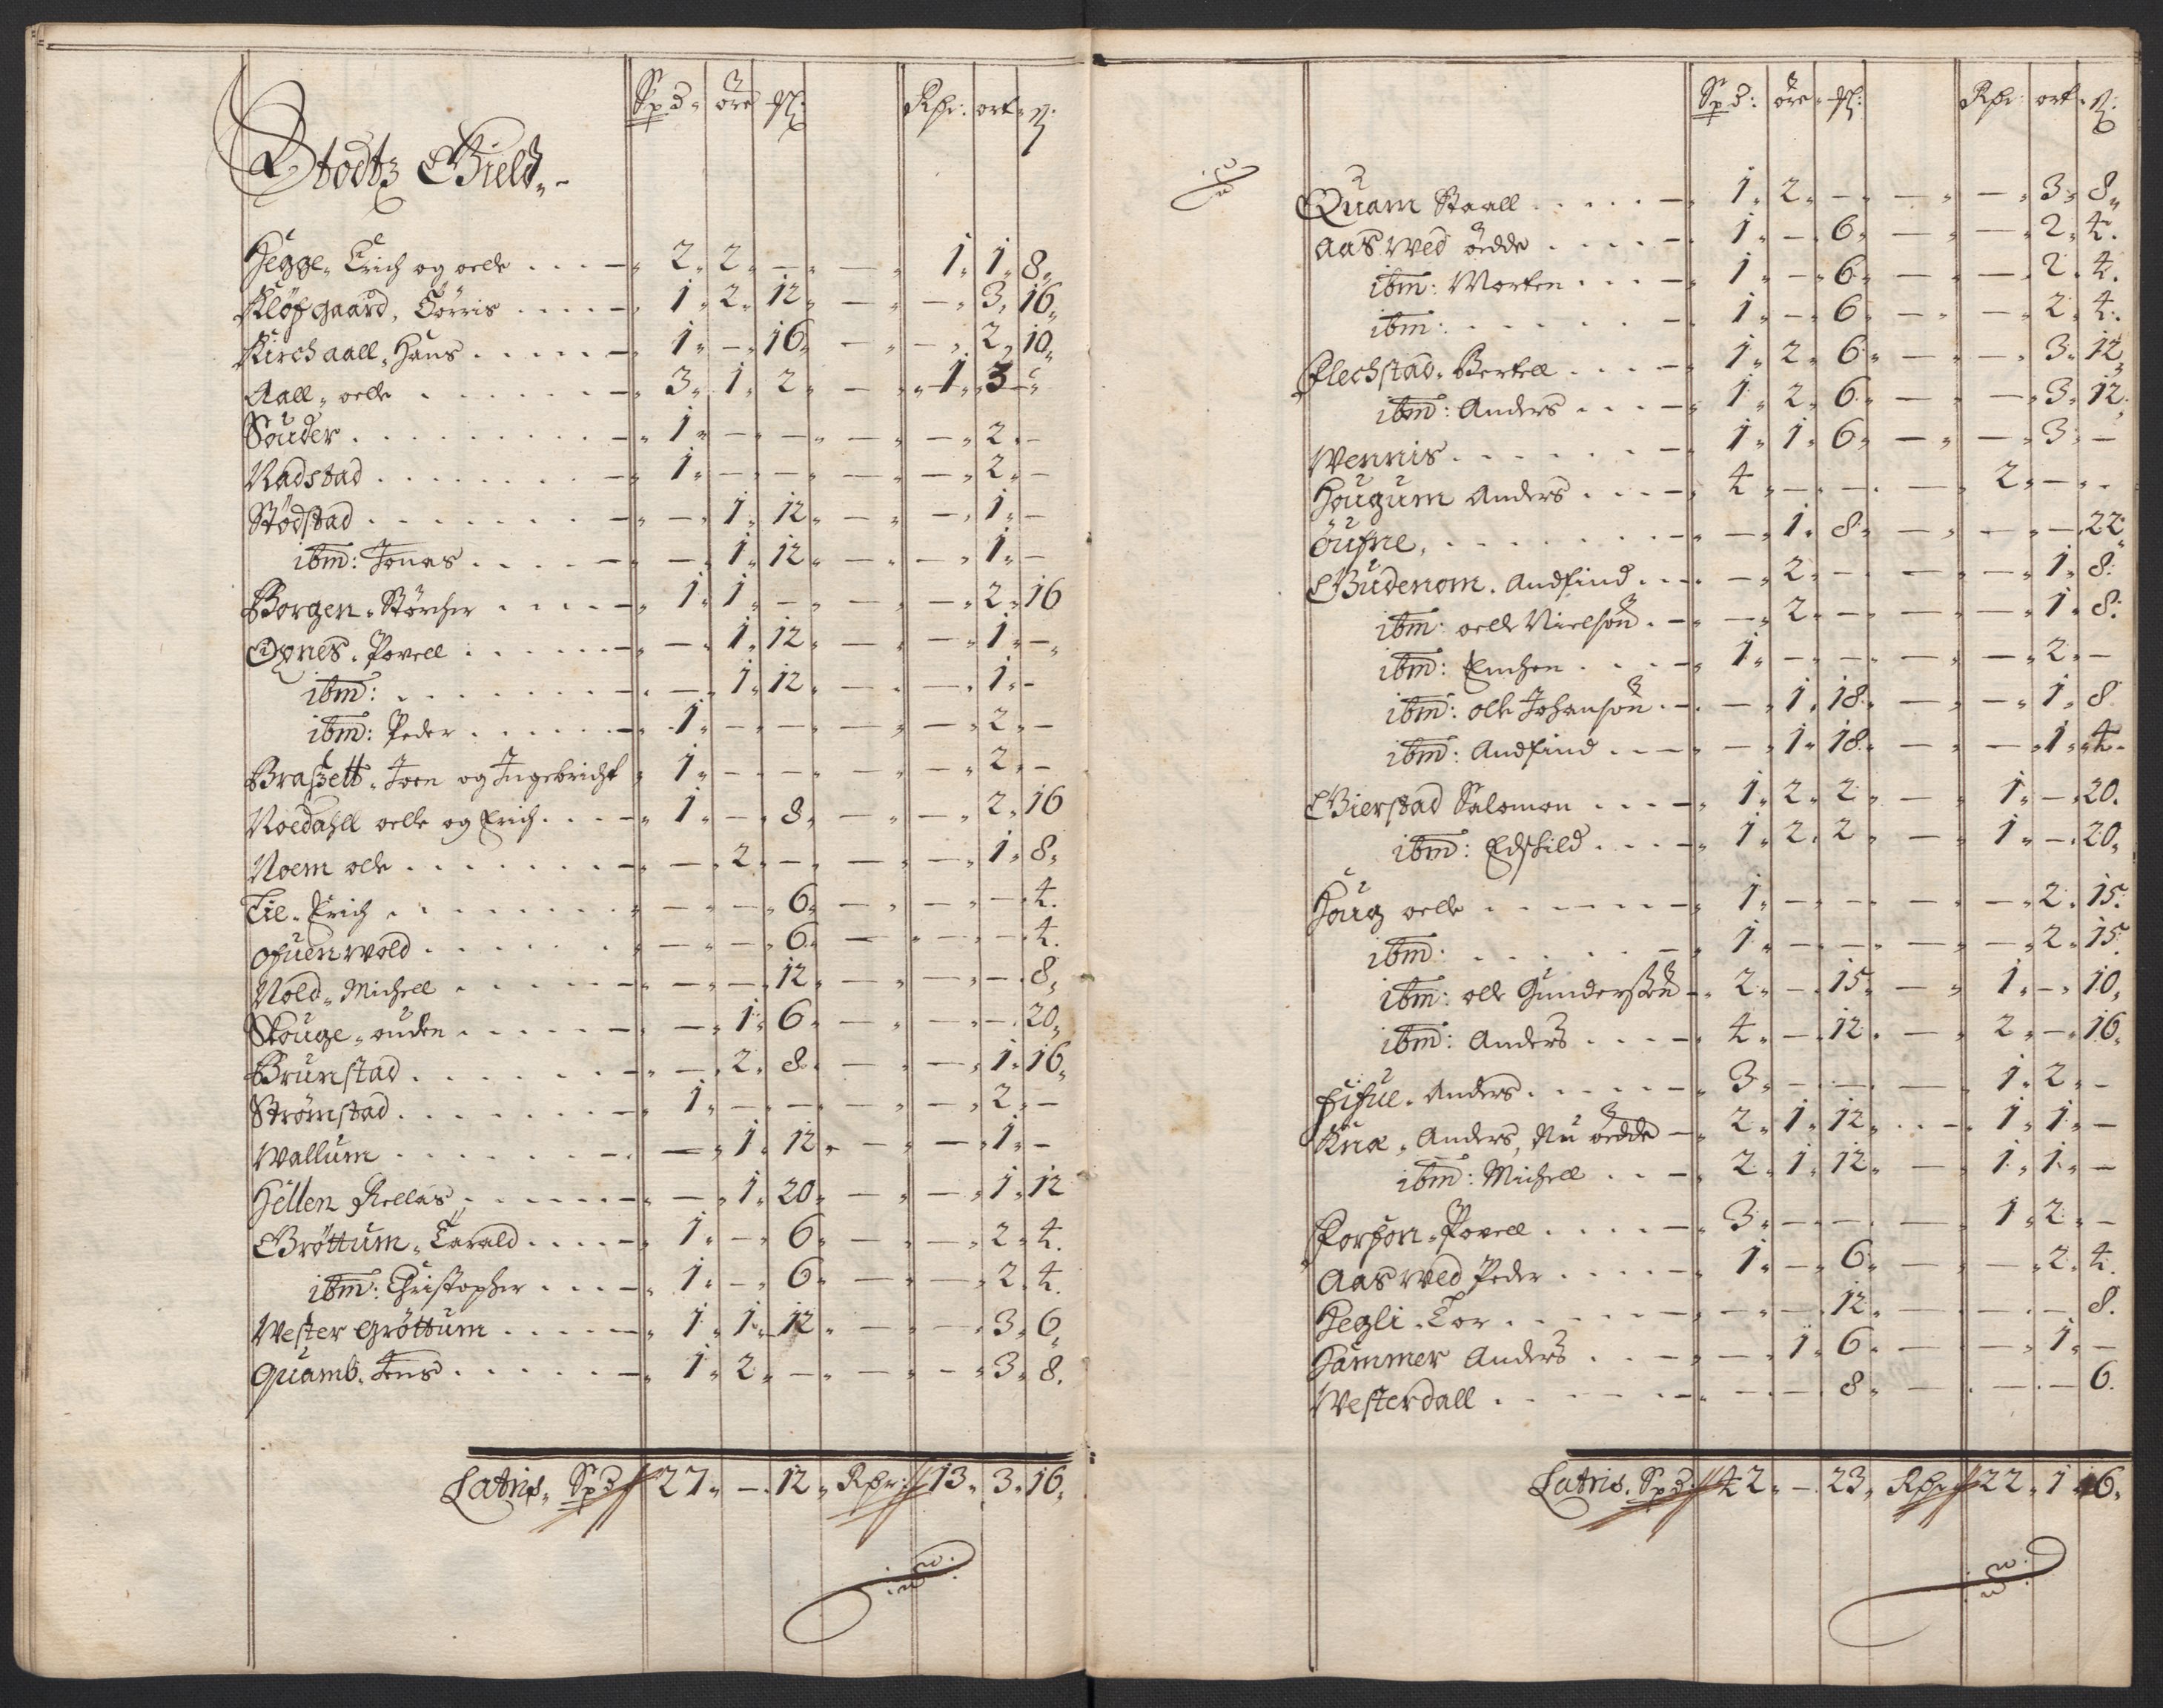 Spd: öre ⟨⟩ Rdr: ort: ß:
Stodtz Gield
Hegge, Erich og oelle .... 2, 2, — — 1, 1, 8,
Kløfgaard, Törris .... 1, 2, 12, — — 3, 16,
Kirchaall, Hans ..... 1, — 16, — — 2, 10,
Aall, oelle ...... 3, 1, 2, — 1, 3 —
Souder ......... 1, — — — — 2, —
Nadstad ........ 1, — — — — 2, —
Stödstad ....... — 1, 12, — — 1, —
ibm: Jonas .... — 1, 12, — — 1, —
Borgen, Störcher .... 1, 1, — — — 2, 16
Opnes, Povell ..... — 1, 12, — — 1, —
ibm: ....... — 1, 12, — — 1, —
ibm: Peder ..... 1, — — — — 2, —
Braßett, Joen og Ingebricht 1, — — — — 2, —
Roedahll oelle og Erich ... 1, — 8, — — 2, 16
Noem olle ....... — 2, — — — 1, 8,
Til, Erich ........ — — 6, — — — 4.
ofuenwold ...... — — 6, — — — 4.
Vold, Michell ..... — — 12, — — — 8,
Skouge, ouden ..... — 1, 6, — — — 20,
Brunstad ...... — 2, 8, — — 1, 16,
Strömstad ...... 1, — — — — 2, —
Wallum ...... — 1, 12, — — 1, —
Hellem Kellas ...... — 1, 20, — — 1, 12
Gröttum, Tarald .... 1, — 6, — — 2, 4.
ibm: Christopher .... 1, — 6, — — 2, 4.
Wester Gröttum .... 1, 1, 12, — — 3, 6,
Quamb, Jens ..... 1, 2, — — — 3, 8.
Latris, Spd 27, — 12, Rdr: 13, 3, 16,
Spd: öre Rdr: ort ß:
Quam Staall ..... 1, 2, — — — 3, 8,
Aas wed ödde .... 1, — 6, — — 2, 4.
ibm: Morten ... 1, — 6, — — 2, 4.
ibm: ...... 1, — 6, — — 2, 4.
Flechstad, Bertell .... 1, 2, 6, — — 3, 12,
ibm: Anders ... 1, 2, 6, — — 3, 12,
Wennis ...... 1, 1, 6, — — 3, —
Hougum Anders ... 4, — — — 2, — —
öufne, ....... — 1, 8, — — — 22,
Gudenom, Andfind ... — 2, — — — 1, 8,
ibm: oelle Nielsön .. — 2, — — — 1, 8,
ibm: Enchen .... 1, — — — — 2, —
ibm: olle Johansön .. — 1, 18, — — 1, 8
ibm: Andfind ... — 1, 18, — — 1, 4.
Gierstad Salomon .... 1, 2, 2, — 1, — 20.
ibm: Edskild .... 1, 2, 2, — 1, — 20,
Houg oelle ...... 1, — — — — 2, 15.
ibm: ..... 1, — — — — 2, 15.
ibm: olle Gunderssön 2, — 15, — 1, — 10,
ibm: Anders .... 4, — 12, — 2, — 16,
Fifue, Anders ..... 3, — — — 1, 2, —
Kna, Anders, Nu ödde 2, 1, 12, — 1, 1, —
ibm: Michell ... 2, 1, 12, — 1, 1, —
Forfon, Povell .... 3, — — — 1, 2, —
Aas wed Peder .... 1, — 6, — — 2, 4.
Hegli, Tor ...... — — 12, — — — 8.
Hammer Anders ... — 1, 6, — — 1, —
Westerdall ...... — — 8, — — — 6.
Latris, Spd: 42, — 23, Rdr 22, 1 16,